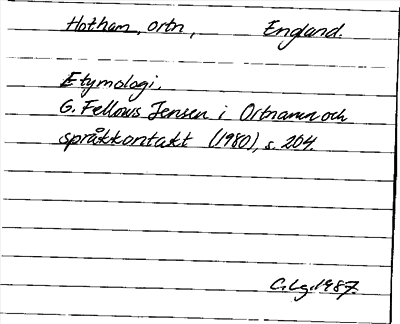 Hotham, ortn, England.
Etymologi.
G. Fellows Jensen i Ortnamn och
språkkontakt (1980), s. 204.
C.Lg. 1987.